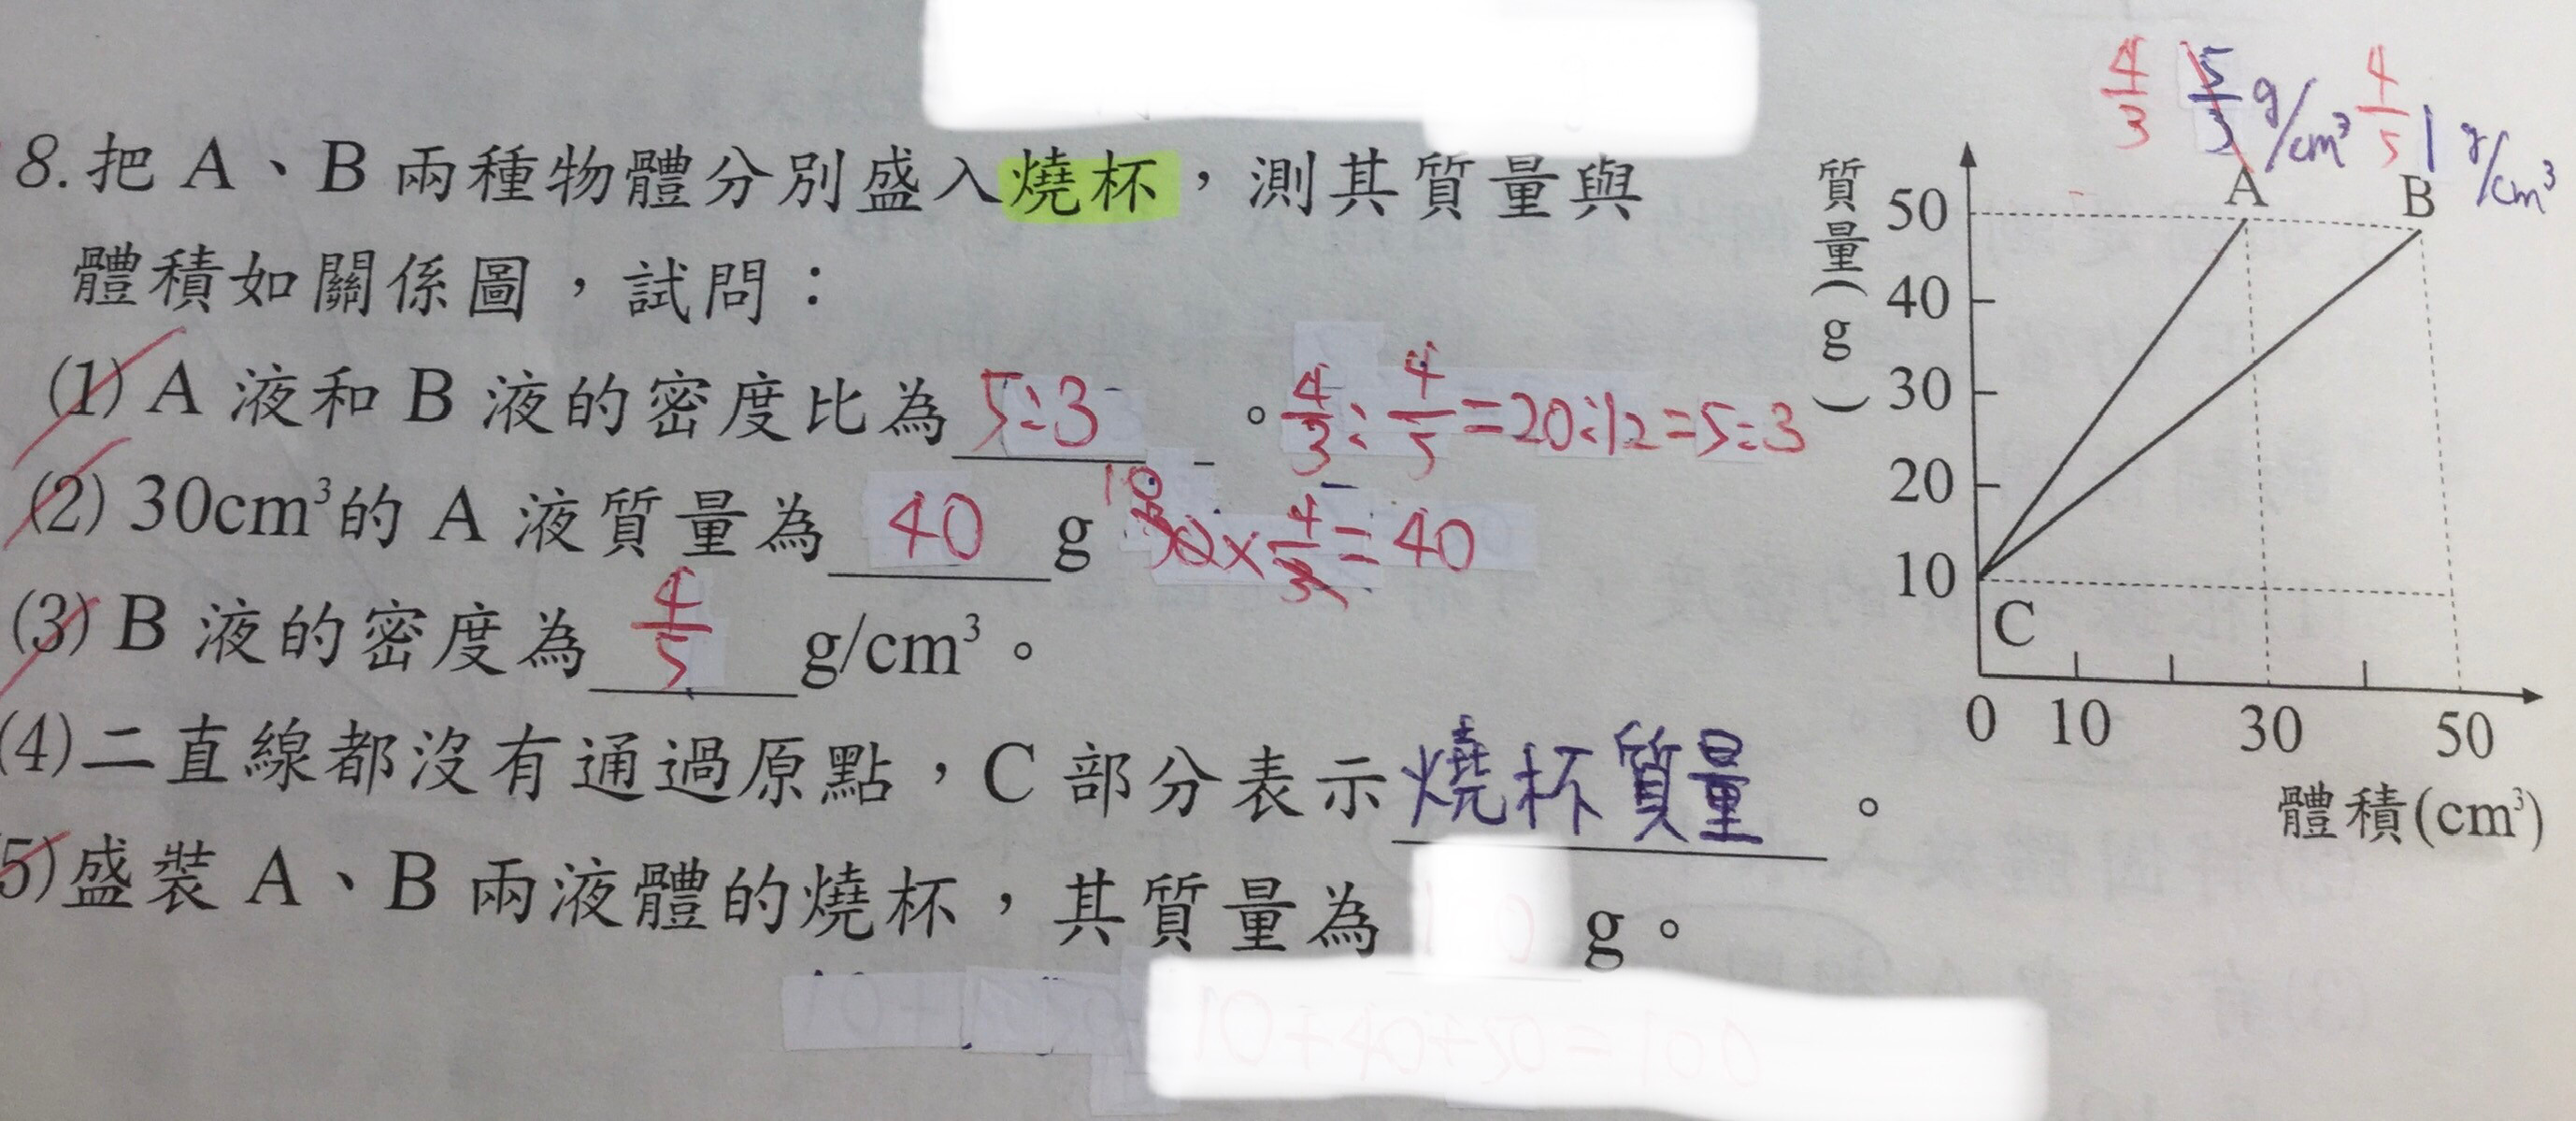 8.把 A、B 兩種物體分別盛入燒杯,測其質量與
體積如關係圖,試問:
(1) A 液和 B 液的密度比為 5:3 。 4/3 : 4/5 =20:12=5:3
(2) 30cm³的 A 液質量為 40 g 10 30× 4/3 = 40
(3) B 液的密度為 4/5 g/cm³。
(4)二直線都沒有通過原點,C 部分表示燒杯質量。
5)盛裝 A、B 兩液體的燒杯,其質量為 10 g。
4/3 5/3 g/cm³ 4/5 1 g/cm³
質量(g)
A B
50
40
30
20
10
C
0 10 30 50
體積(cm³)